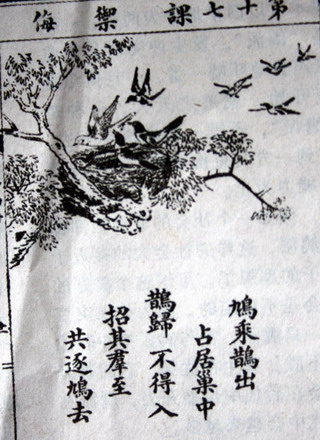 第十七課 禦侮
鳩乘鵲出
占居巢中
鵲歸不得入
招其羣至
共逐鳩去